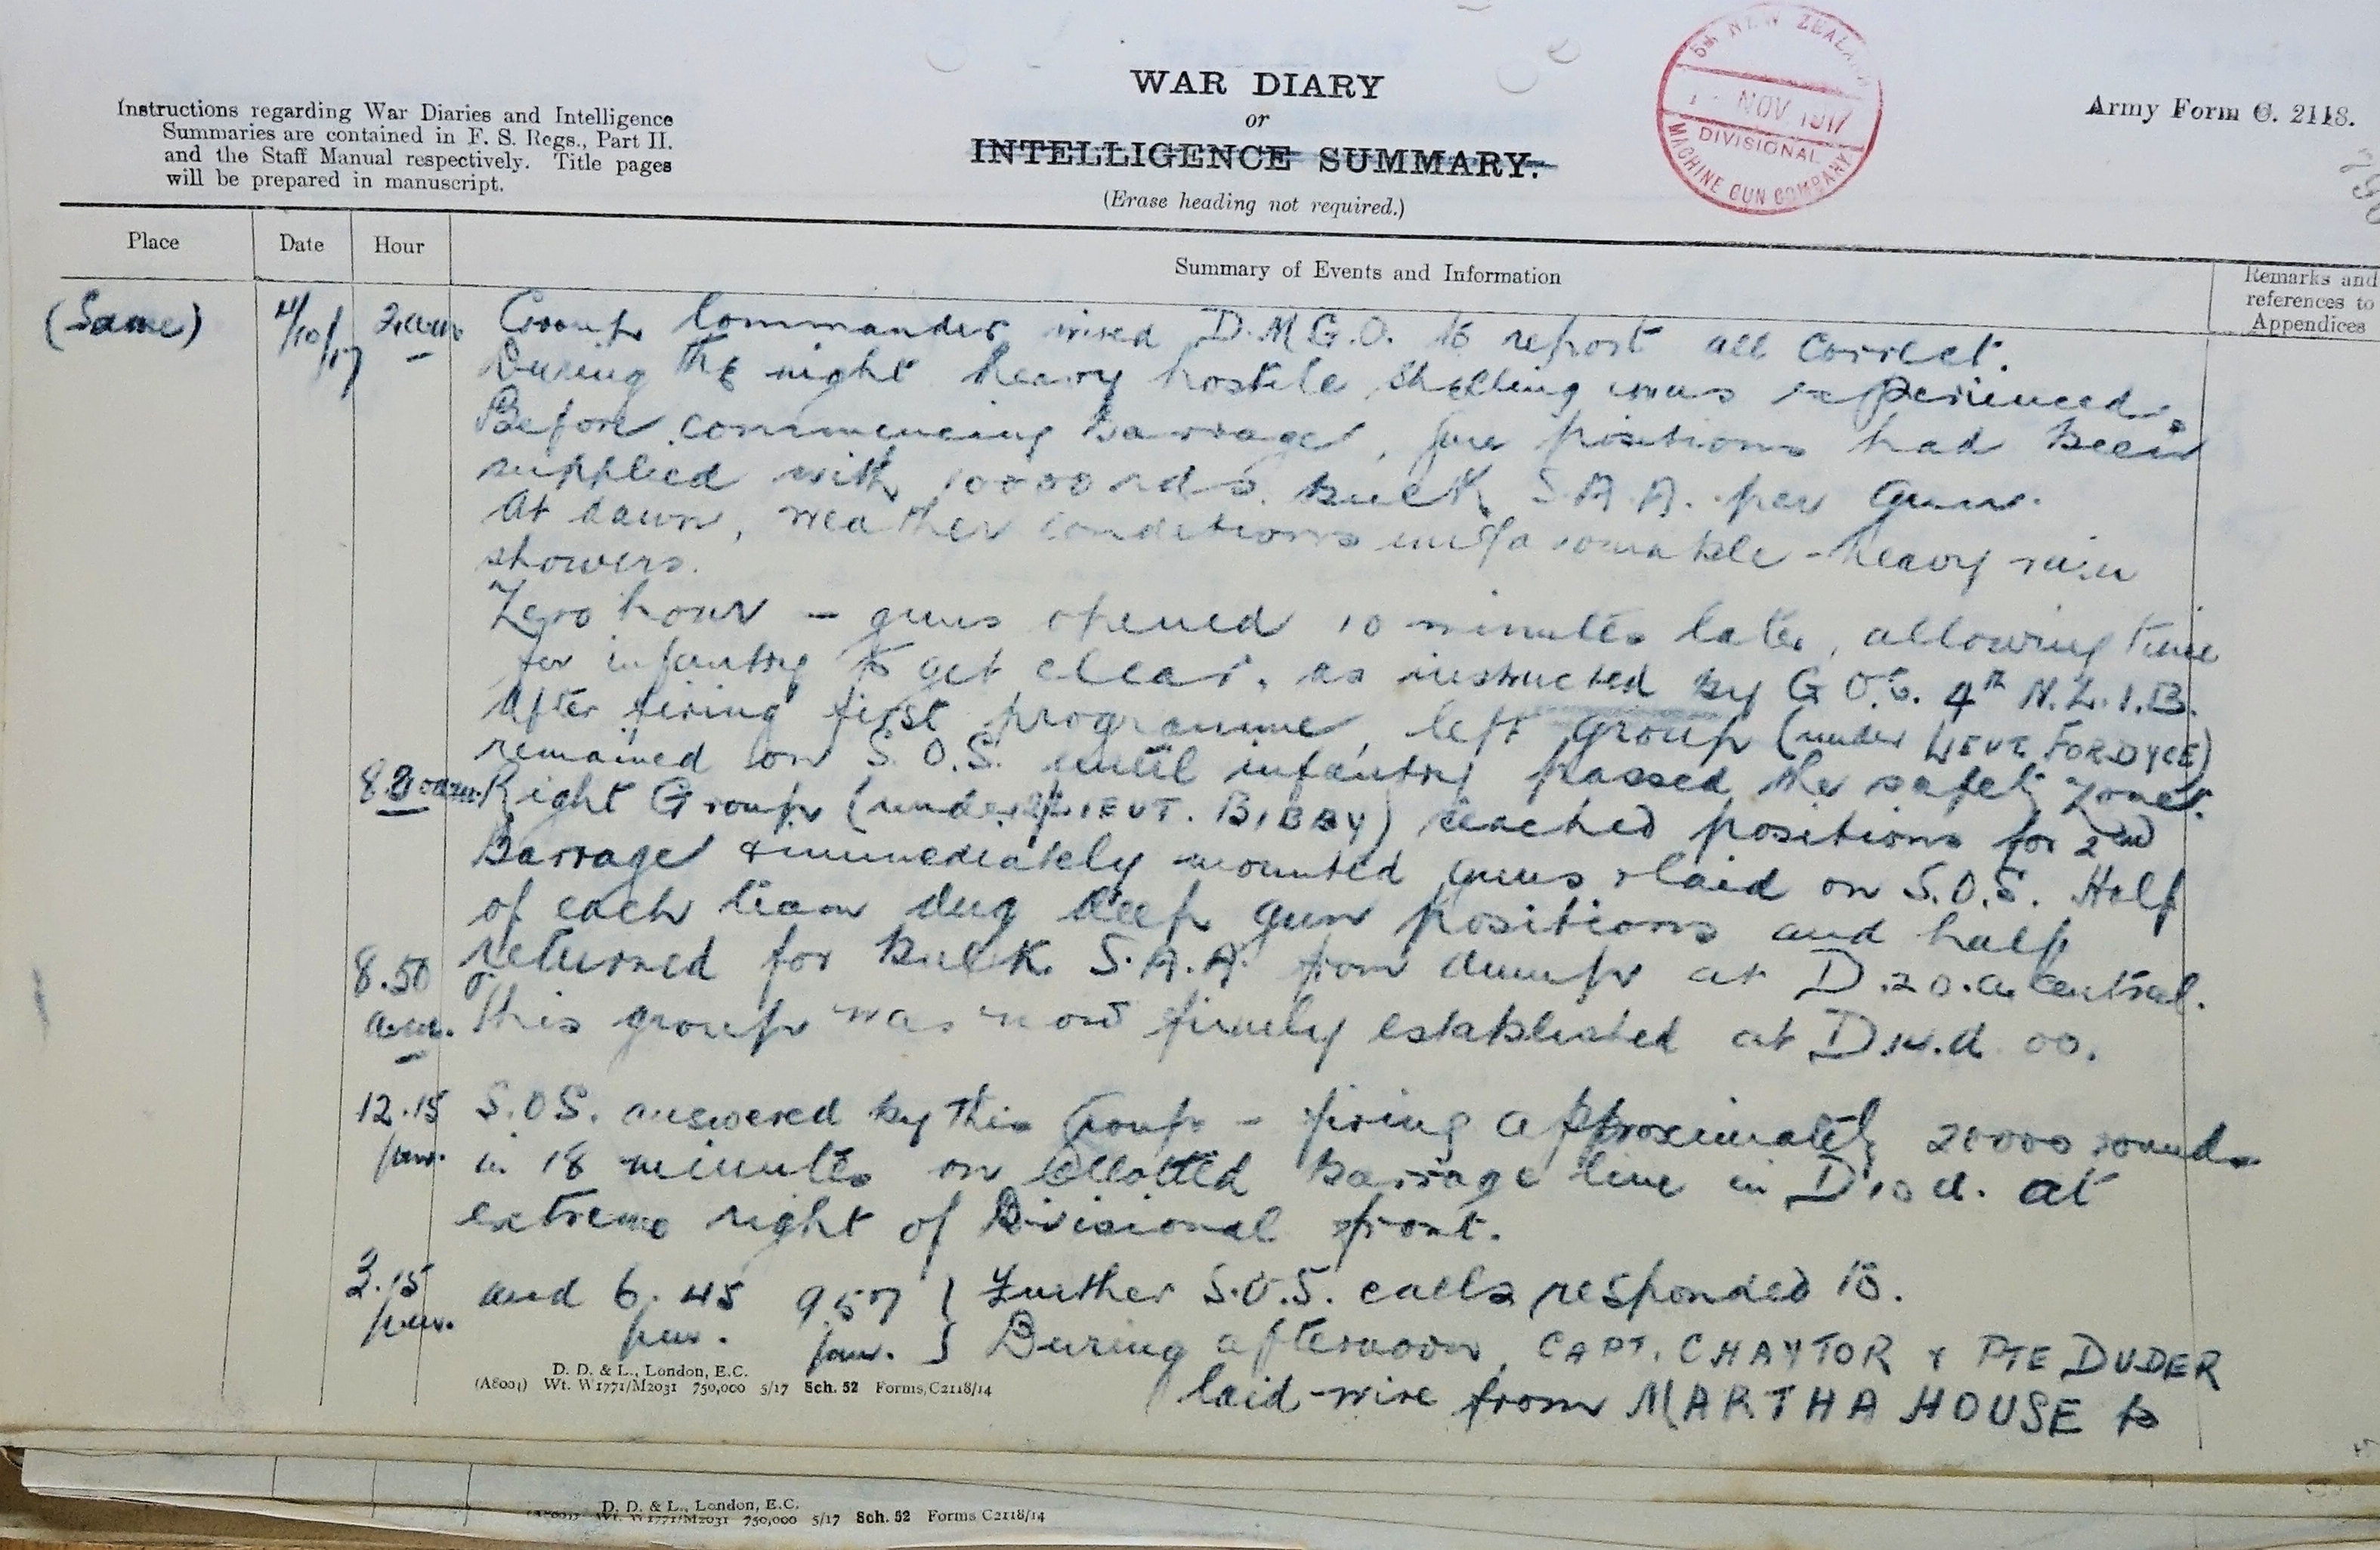 Instructions regarding War Diaries and Intelligence
Summaries are contained in F. S. Regs., Part II.
and the Staff Manual respectively. Title pages
will be prepared in manuscript.
WAR DIARY
or
INTELLIGENCE SUMMARY.
(Erase heading not required.)
5th NEW ZEALAND
NOV 1917
DIVISIONAL
MACHINE GUN COMPANY
Army Form C. 2118.
Place Date Hour Summary of Events and Information Remarks and references to Appendices
(Same) 4/10/17 2am Group Commander wired D.M.G.O. to report all correct.
During the night heavy hostile shelling was experienced.
Before commencing barrage, gun positions had been
supplied with 10000 rds. bulk S.A.A. per gun.
At dawn, weather conditions unfavourable - heavy rain
showers.
Zero hour - guns opened 10 minutes later, allowing time
for infantry to get clear, as instructed by G.O.C. 4th N.Z.I.B.
After firing first programme, left group (under LIEUT FORDYCE)
remained on S.O.S. until infantry passed the safety zone.
8.30am Right Group (under 2/LIEUT. BIBBY) reached positions for 2nd
Barrage & immediately mounted guns & laid on S.O.S. Half
of each team dug deep gun positions and half
returned for bulk S.A.A. from dump at D.20.a central.
8.50 am. This group was now firmly established at D.14.d 00.
12.15 pm. S.O.S. answered by this Group - firing approximately 20000 rounds
in 18 minutes on allotted barrage line in D.10 d. at
extreme right of Divisional front.
3.15 pm. and 6.45 pm. 9.57 pm. } Further S.O.S. calls responded to.
During afternoon, CAPT. CHAYTOR & PTE DUDER
laid wire from MARTHA HOUSE to
D. D. & L., London, E.C.
(A8001) Wt. W1771/M2031 750,000 5/17 Sch. 52 Forms/C2118/14
D. D. & L., London, E.C.
(A8001) Wt. W1771/M2031 750,000 5/17 Sch. 52 Forms C2118/14